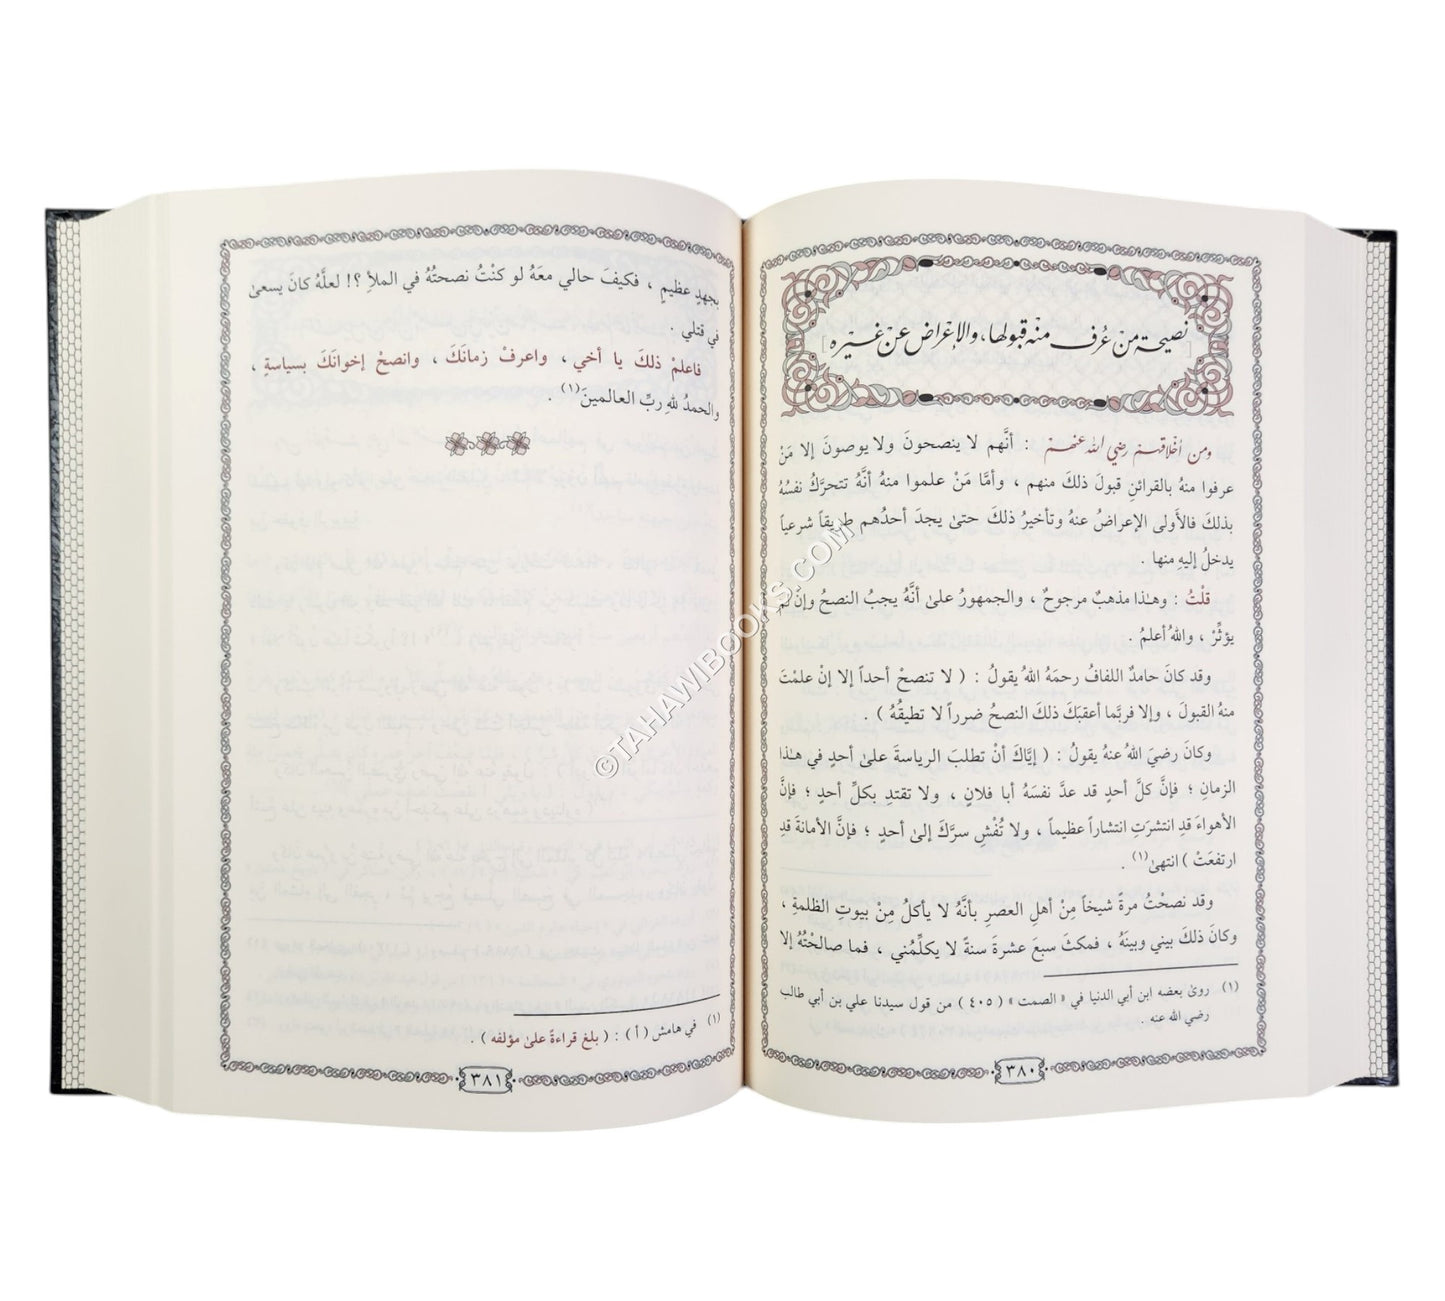 [نصيحة من عُرف منه قبولها، والإعراض عن غيره]
ومن أخلاقهم رضي الله عنهم : أنَّهم لا ينصحونَ ولا يوصونَ إلا مَنْ
عرفوا منهُ بالقرائنِ قبولَ ذلكَ منهم ، وأمَّا مَنْ علموا منهُ أنَّهُ تتحرَّكُ نفسُهُ
بذلكَ فالأَولى الإعراضُ عنهُ وتأخيرُ ذلكَ حتىٰ يجدَ أحدُهم طريقاً شرعياً
يدخلُ إليهِ منها .
قلْتُ : وهـٰذا مذهبٌ مرجوحٌ ، والجمهورُ علىٰ أنَّهُ يجبُ النصحُ وإنْ لم
يؤثِّرْ ، واللهُ أعلمُ .
وقد كانَ حامدٌ اللفافُ رحمَهُ اللهُ يقولُ : ( لا تنصحْ أحداً إلا إنْ علمْتَ
منهُ القبولَ ، وإلا فربَّما أعقبَكَ ذلكَ النصحُ ضرراً لا تطيقُهُ ) .
وكانَ رضيَ اللهُ عنهُ يقولُ : ( إيَّاكَ أنْ تطلبَ الرياسةَ علىٰ أحدٍ في هـٰذا
الزمانِ ؛ فإنَّ كلَّ أحدٍ قد عدَّ نفسَهُ أبا فلان ، ولا تقتدِ بكلِّ أحدٍ ؛ فإنَّ
الأهواءَ قدِ انتشرَتِ انتشاراً عظيماً ، ولا تُفْشِ سرَّكَ إلىٰ أحدٍ ؛ فإنَّ الأمانةَ قدِ
ارتفعَتْ ) انتهىٰ(١) .
وقد نصحْتُ مرةً شيخاً مِنْ أهلِ العصرِ بأنَّهُ لا يأكلُ مِنْ بيوتِ الظلمةِ ،
وكانَ ذلكَ بيني وبينَهُ ، فمكثَ سبعَ عشرةَ سنةً لا يكلِّمُني ، فما صالحْتُهُ إلا
(١) روىٰ بعضه ابن أبي الدنيا في « الصمت » ( ٤٠٥ ) من قول سيدنا علي بن أبي طالب
رضي الله عنه .
٣٨٠
بجهدٍ عظيمٍ ، فكيفَ حالي معَهُ لو كنْتُ نصحتُهُ في الملأِ ؟! لعلَّهُ كانَ يسعىٰ
في قتلي .
فاعلمْ ذلكَ يا أخي ، واعرفْ زمانَكَ ، وانصحْ إخوانَكَ بسياسةٍ ،
والحمدُ للهِ ربِّ العالمينَ(١) .
(١) في هامش ( أ ) : ( بلغ قراءةً علىٰ مؤلفه ) .
٣٨١
©TAHAWIBOOKS.COM